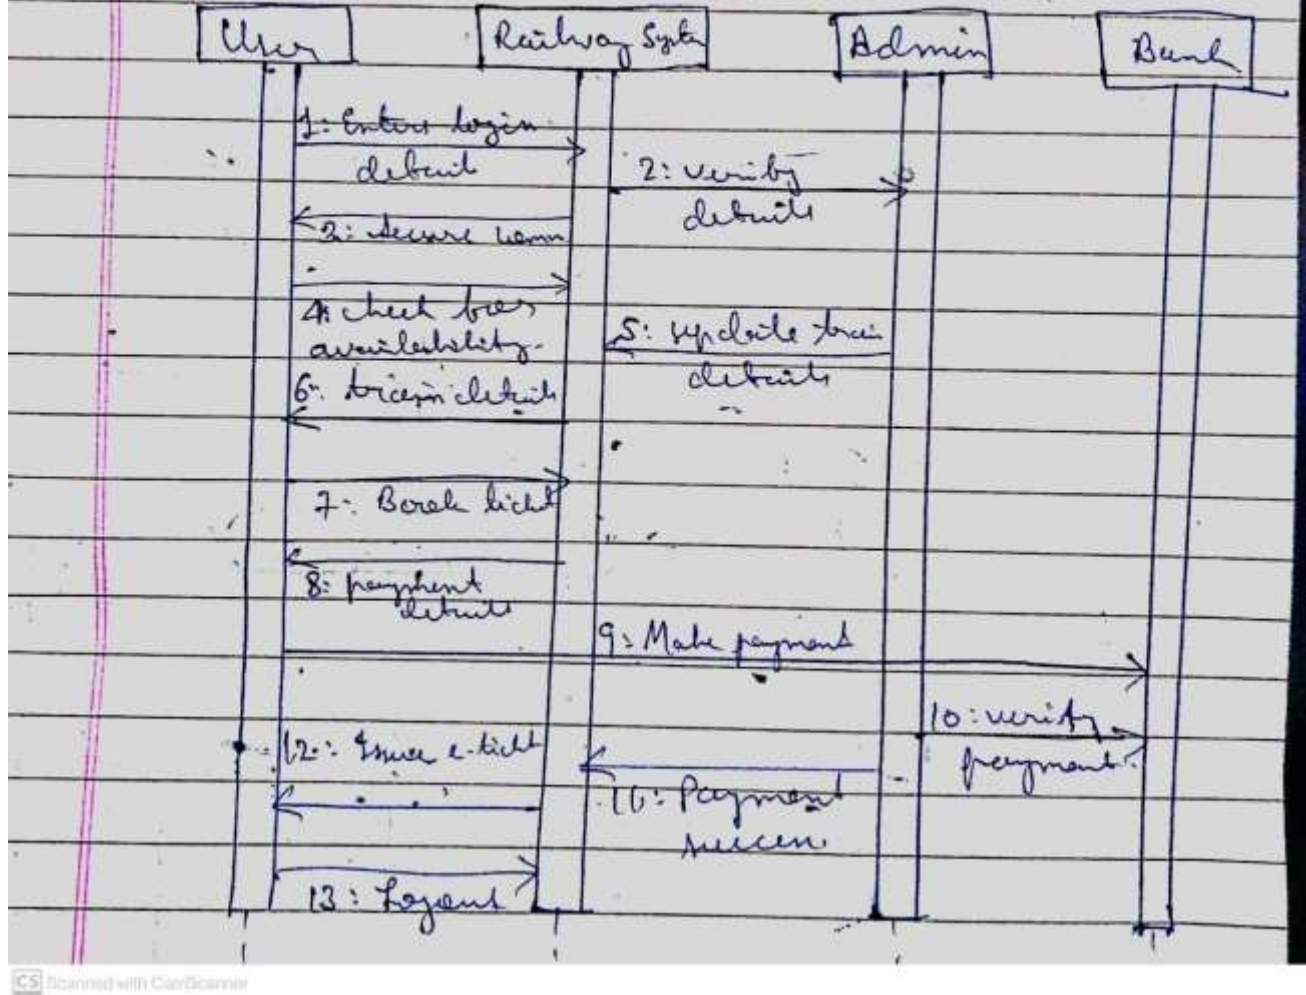 User
Railway System
Admin
Bank
1: Enters login
detail
2: verify
details
3: secure
4: check
availability.
5: update train
details
6: train details
7: Book ticket
8: payment
details
9: Make payment
10: verify
payment
12: Issue e-ticket
11: Payment
success
13: Logout
CS Scanned with CamScanner